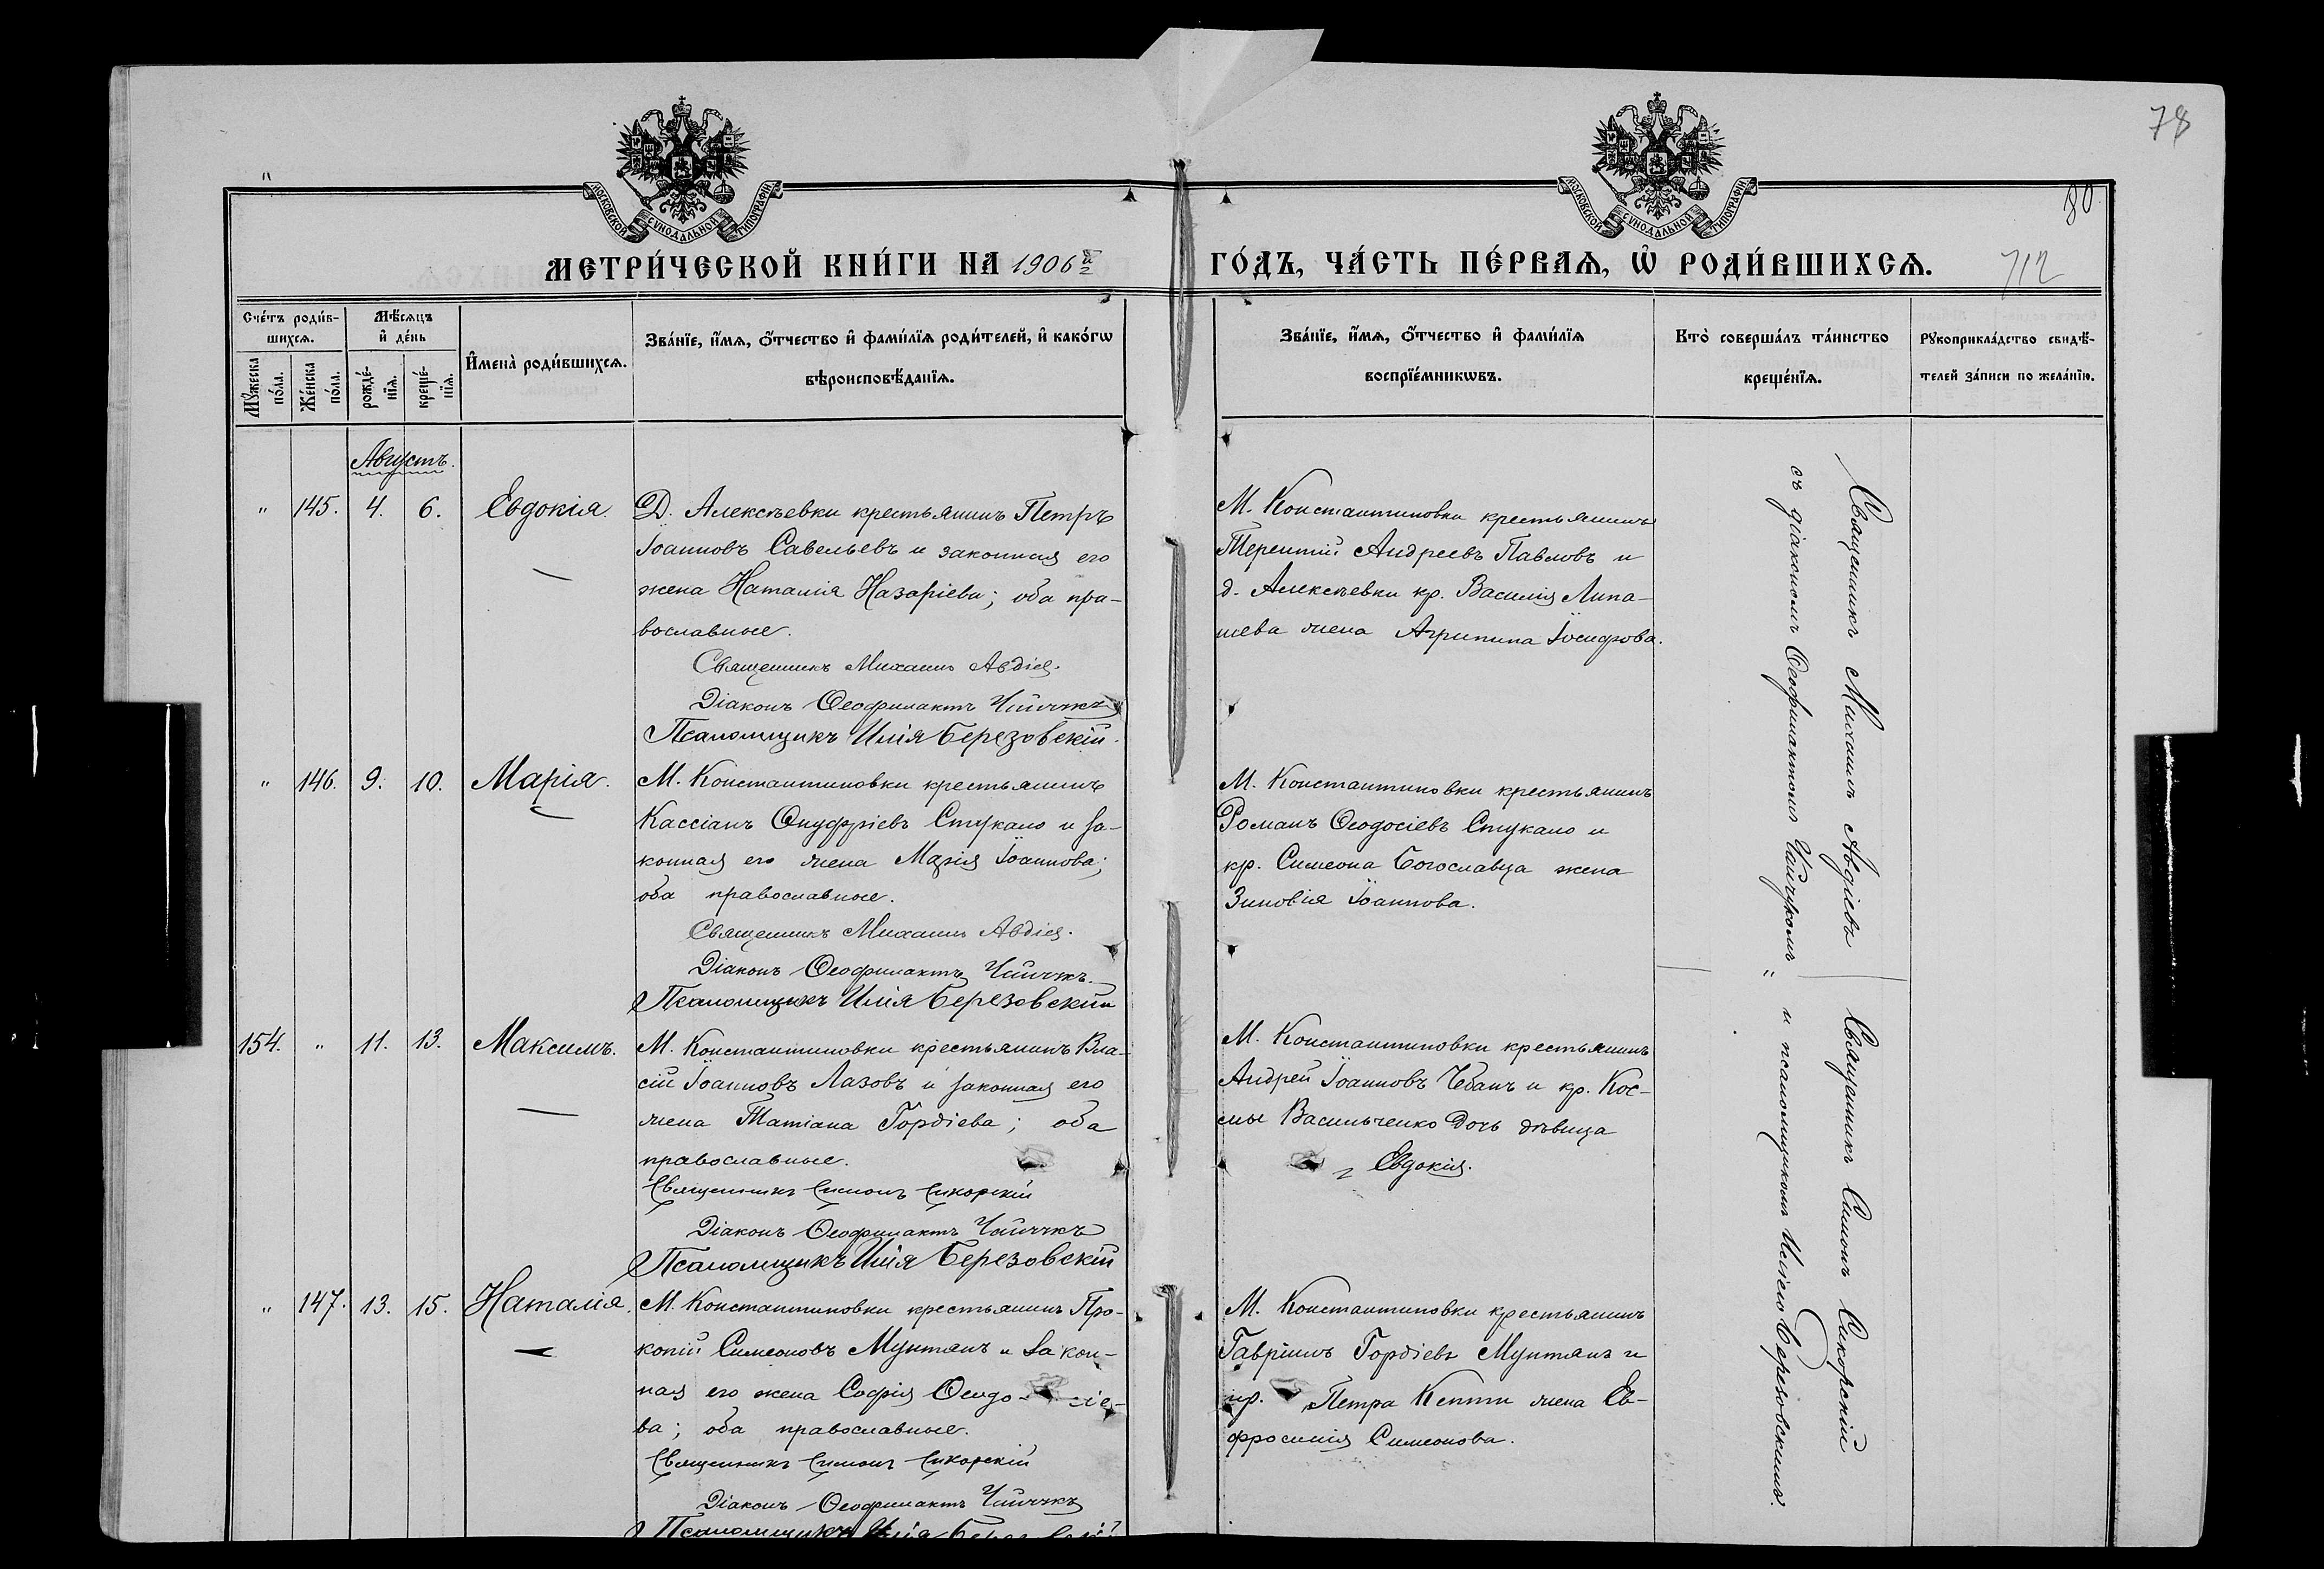 78
80
712
МОСКОВСКОЙ СѴНОДАЛЬНОЙ ТИПОГРАФІИ
МОСКОВСКОЙ СѴНОДАЛЬНОЙ ТИПОГРАФІИ
МЕТРИ́ЧЕСКОЙ КНИ́ГИ НА 1906й ГО́ДЪ, ЧА́СТЬ ПЕ́РВАѦ, Ѡ҆ РОДИ́ВШИХСѦ.
Сче́тъ роди́в-
шихсѧ.
Мꙋ́жеска по́ла.
Же́нска по́ла.
Мѣ́сѧцъ
и҆ де́нь
рожде́-
нїѧ.
креще́-
нїѧ.
И҆мена̀ роди́вшихсѧ.
Зва́нїе, и҆́мѧ, ѻ҆́тчество и҆ фами́лїѧ роди́телей, и҆ како́гѡ
вѣроисповѣ́данїѧ.
Зва́нїе, и҆́мѧ, ѻ҆́тчество и҆ фами́лїѧ
воспрїе́мникѡвъ.
Кто̀ соверша́лъ та́инство
креще́нїѧ.
Рꙋкоприкла́дство свидѣ́-
телей за́писи по жела́нїю.
Августъ.
" 145. 4. 6. Евдокія.
Д. Алексѣевки крестьянинъ Петръ
Іоанновъ Савельевъ и законная его
жена Наталія Назаріева; оба пра-
вославные.
Священникъ Михаилъ Авдіев.
Діаконъ Ѳеофилактъ Чайчукъ
Псаломщикъ Илія Березовскій.
М. Константиновки крестьянинъ
Терентій Андреевъ Павловъ и
д. Алексѣевки кр. Василія Липа-
шева жена Агрипина Іосифова.
" 146. 9. 10. Марія.
М. Константиновки крестьянинъ
Кассіанъ Онуфріевъ Стукало и за-
конная его жена Марія Іоаннова;
оба православные.
Священникъ Михаилъ Авдіев.
Діаконъ Ѳеофилактъ Чайчукъ.
Псаломщикъ Илія Березовскій
М. Константиновки крестьянинъ
Романъ Ѳеодосіевъ Стукало и
кр. Симеона Богославца жена
Зиновія Іоаннова.
154. " 11. 13. Максимъ.
М. Константиновки крестьянинъ Вла-
сій Іоанновъ Лазовъ и законная его
жена Татіана Гордіева; оба
православные.
Священникъ Симонъ Сикорскій
Діаконъ Ѳеофилактъ Чайчукъ
Псаломщикъ Илія Березовскій
М. Константиновки крестьянинъ
Андрей Іоанновъ Чебанъ и кр. Кос-
мы Васильченко дочь дѣвица
Евдокія.
" 147. 13. 15. Наталія.
М. Константиновки крестьянинъ Про-
копій Симеоновъ Мунтянъ и закон-
ная его жена Софія Ѳеодо-сіе-
ва; оба православные.
Священникъ Симонъ Сикорскій
Діаконъ Ѳеофилактъ Чайчукъ
Псаломщикъ Илія
М. Константиновки крестьянинъ
Гавріилъ Гордіевъ Мунтянъ и
кр. Петра Кепти жена Ев-
фросинія Симеонова.
Священникъ Михаилъ Авдіевъ
съ діакономъ Ѳеофилактомъ Чайчукомъ "
Священникъ Симонъ Сикорскій
и псаломщикомъ Иліею Березовскимъ.